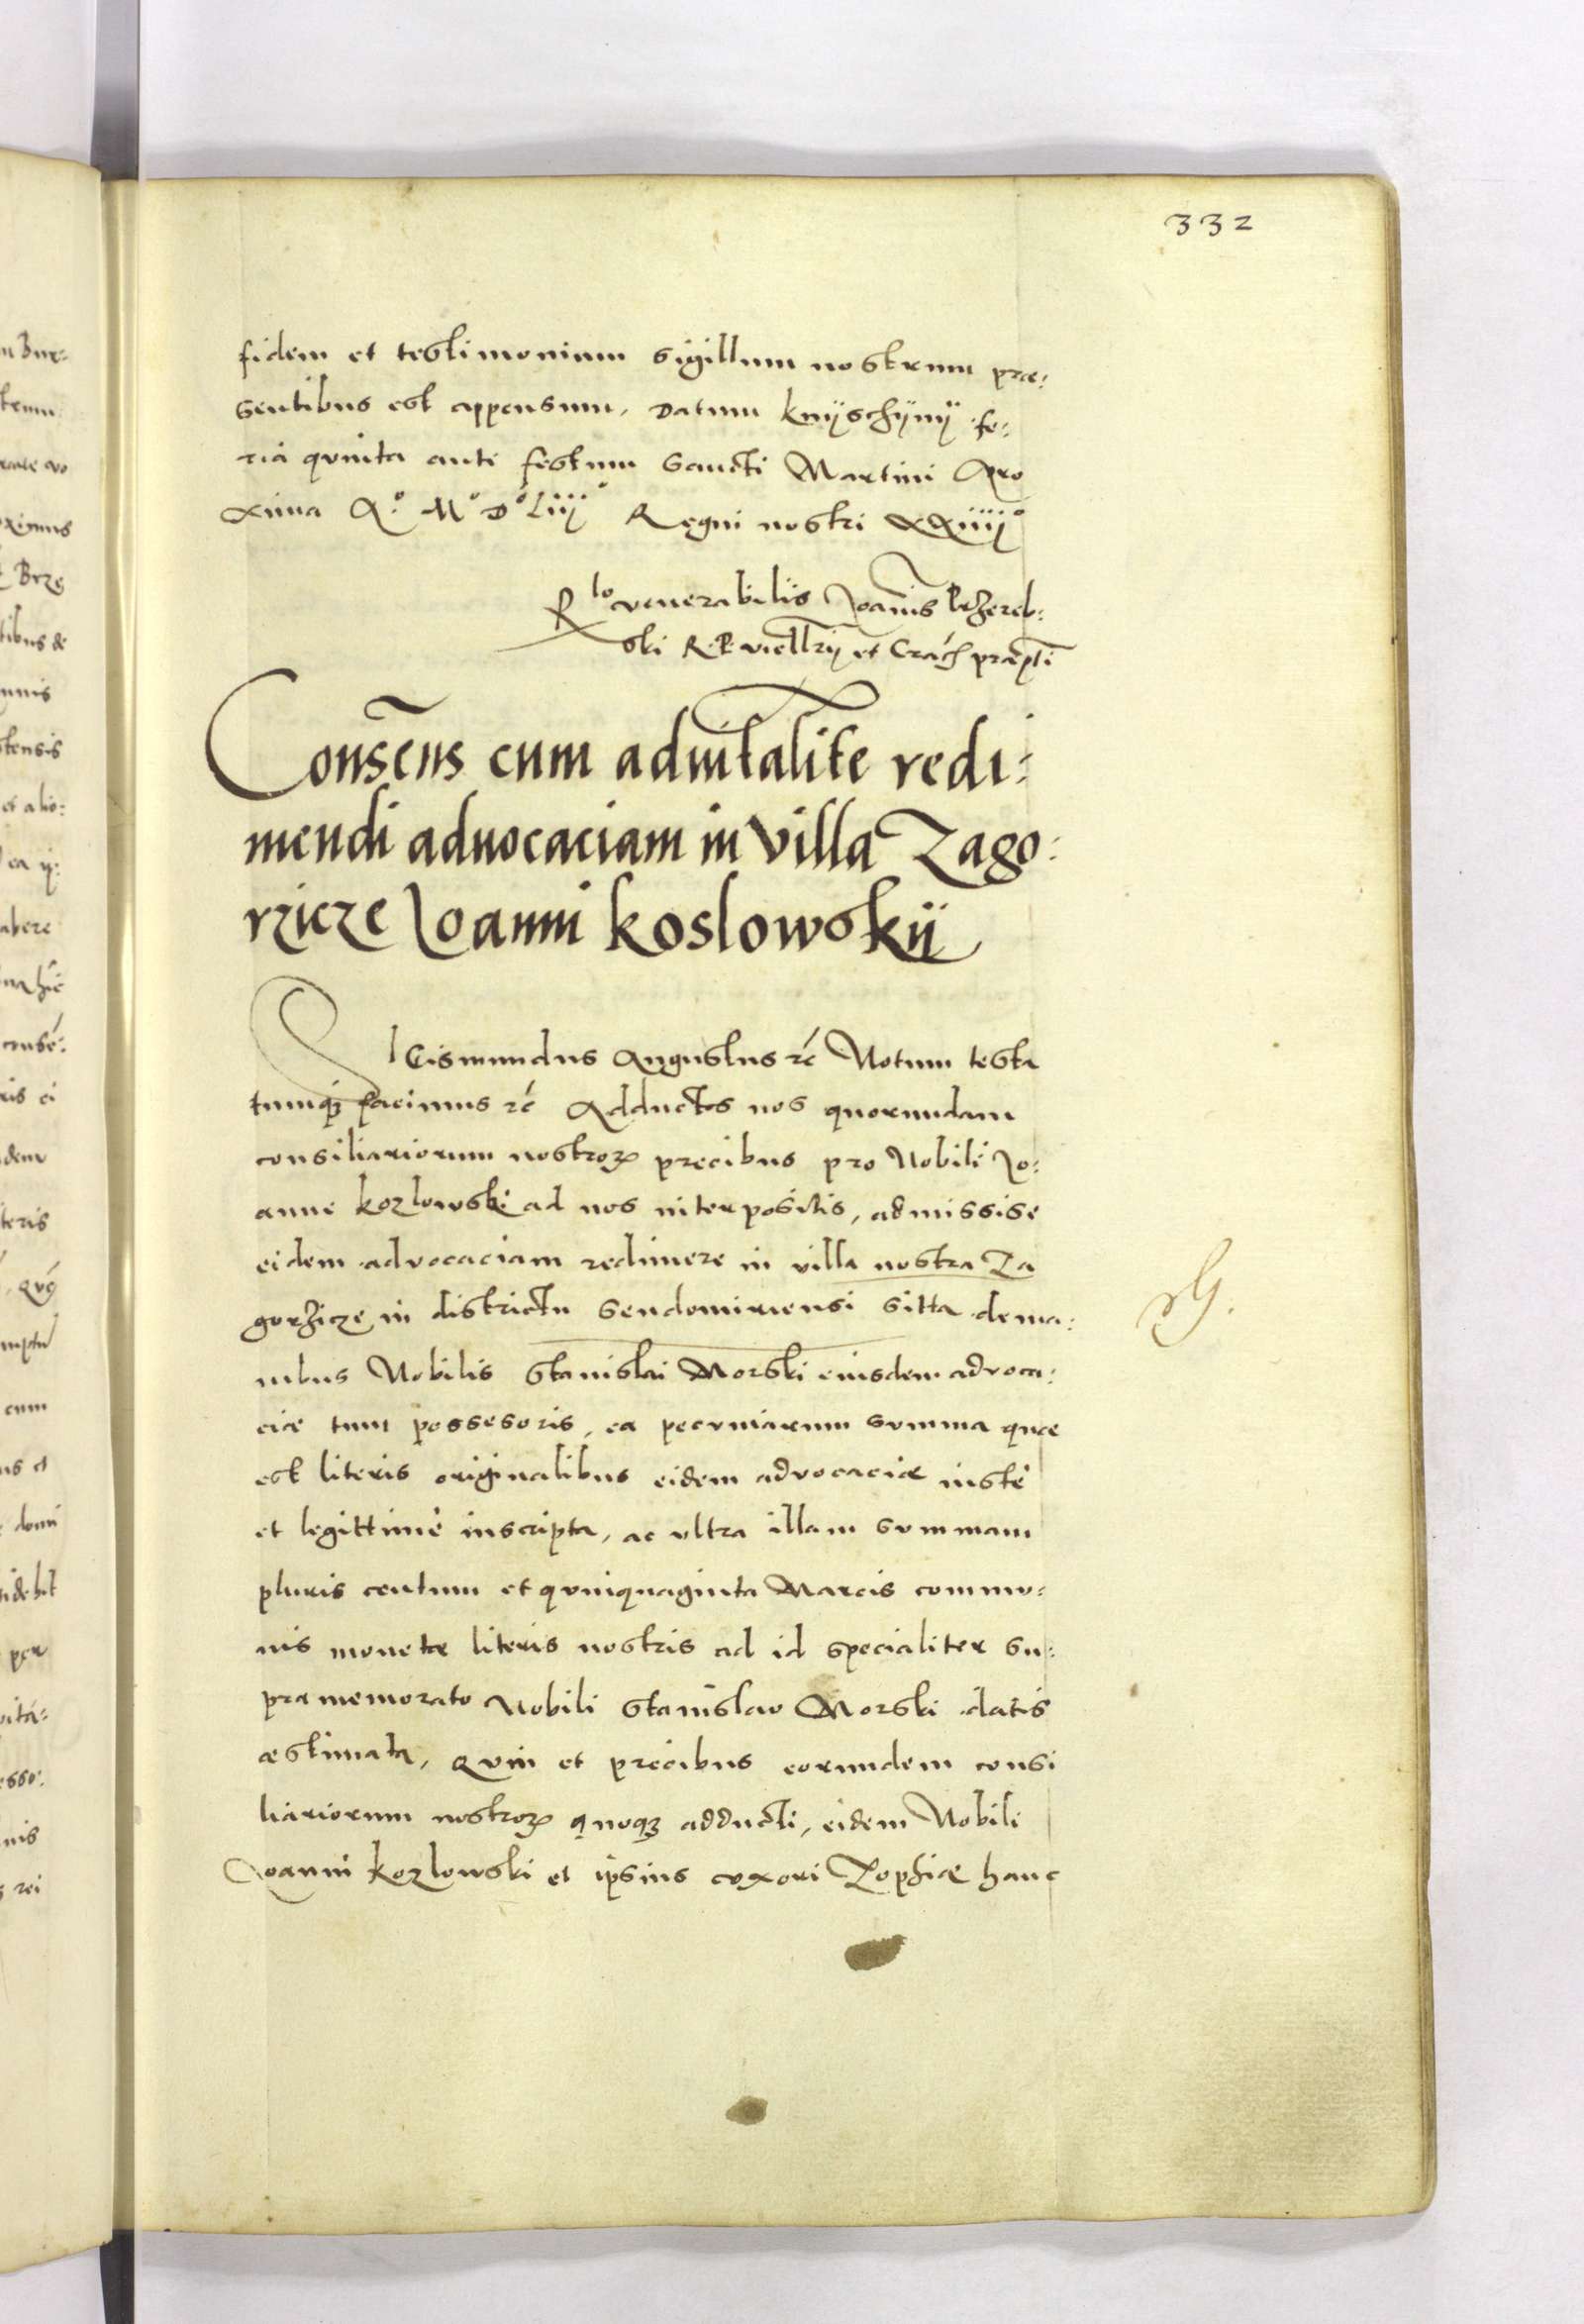 332
fidem et testimonium sigillum nostrum præ:
sentibus est appensum, Datum Knÿschÿnÿ fe:
ria qvinta ante festum Sancti Martini pro
xima A.º Mº Dº Liiijº Regni nostri xxiiijº
Rlo venerabilis Joanīs Przereb:
ski R. P. vicecllrij et
Consēns cum aduitalite redi:
mendi aduocaciam in villa Zago:
rzicze Joanni Koslowskij
SIGismundus Augustus rć Notum testa
tumqȝ facimus rć Adductos nos quorundam
consiliariorum nostroꝝ precibus pro Nobili Jo:
anne Kozlowski ad nos interpositis, admissise
eidem advocaciam redimere in villa nostra Za
gorzicze in districtu Sendomiriensi sitta de ma:
nibus Nobilis Stanislai Morski eiusdem advoca:
ciæ tunc possesoris, ea pecuniarum summa quæ
est literis originalibus eidem advocaciæ iustè
et legittimè inscripta, ac vltra illam summam
pluris centum et qvinquaginta Marcis commu:
nis monetæ literis nostris ad id specialiter su:
pra memorato Nobili Stanislao Morski datis
æstimata, Qvin et precibus eorundem consi
liariorum nostroꝝ quoqȝ adducti, eidem Nobili
Joanni Kozlowski et ipsius vxori Zophiæ hanc